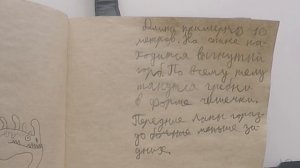 Длина примерно 10
метров. На спине на-
ходился выгнутый
горб. По всему телу
тянулся гребни
в форме чешечки.
Передние лапы гораз-
до больше меньше за-
дних.